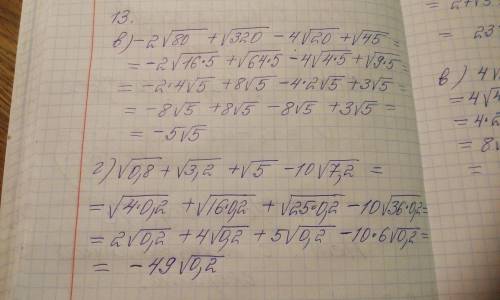 13.
в) -2√80 + √320 - 4√20 + √45 =
= -2√16·5 + √64·5 - 4√4·5 + √9·5 =
= -2·4√5 + 8√5 - 4·2√5 + 3√5 =
= -8√5 + 8√5 - 8√5 + 3√5 =
= -5√5
г) √0,8 + √3,2 + √5 - 10√7,2 =
= √4·0,2 + √16·0,2 + √25·0,2 - 10√36·0,2 =
= 2√0,2 + 4√0,2 + 5√0,2 - 10·6√0,2 =
= -49√0,2
= 2+√3
= 23
в) 4√
= 4√4
= 4·2
= 8√
=